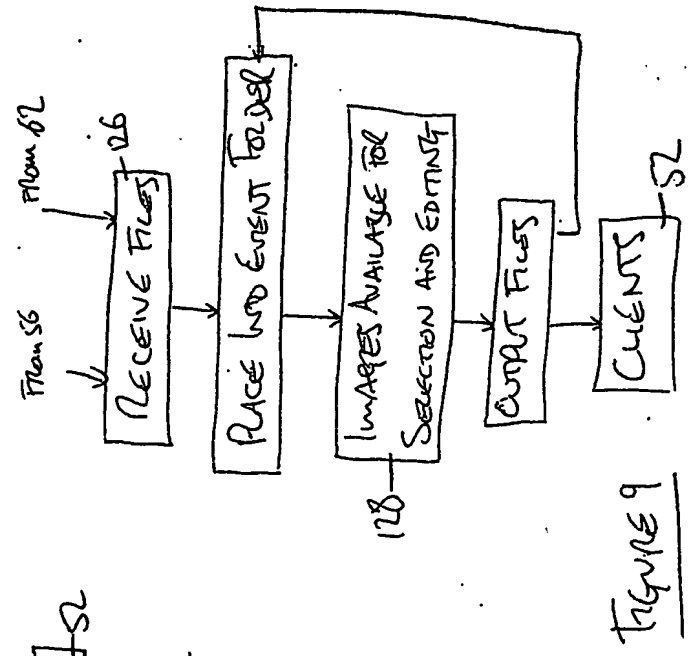 FROM 56
FROM 62
RECEIVE FILES
126
PLACE INTO EVENT FOLDER
IMAGES AVAILABLE FOR
SELECTION AND EDITING
128
OUTPUT FILES
CLIENTS
52
52
FIGURE 9